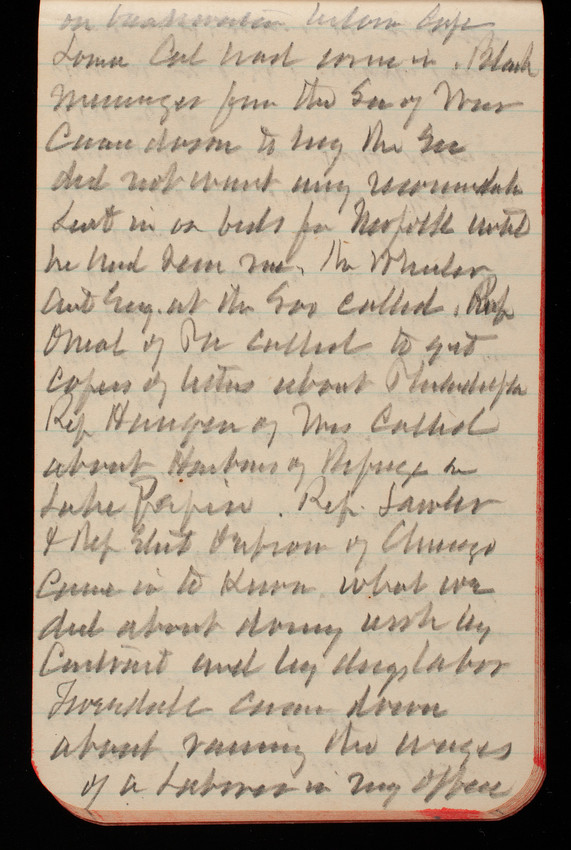 on breakwater before Cape
Some Col had come in. Black
Messenger from the Sec of War
Came down to say the Sec
did not want any recommenda
sent in on bids for Norfolk until
he had seen me. Mr Wheeler
Act Eng. at the Soo called. Rep
Oneal of Pa called to get
copies of letters about Philadelphia
Rep Haugen of Wis Called
about Harbour of Refuge on
Lake Pepin. Rep. Lawler
& Rep Elect Durborow of Chicago
Came in to Know what we
did about doing work by
Contract and by days labor
Truesdell came down
about raising the wages
of a Laborer in my office